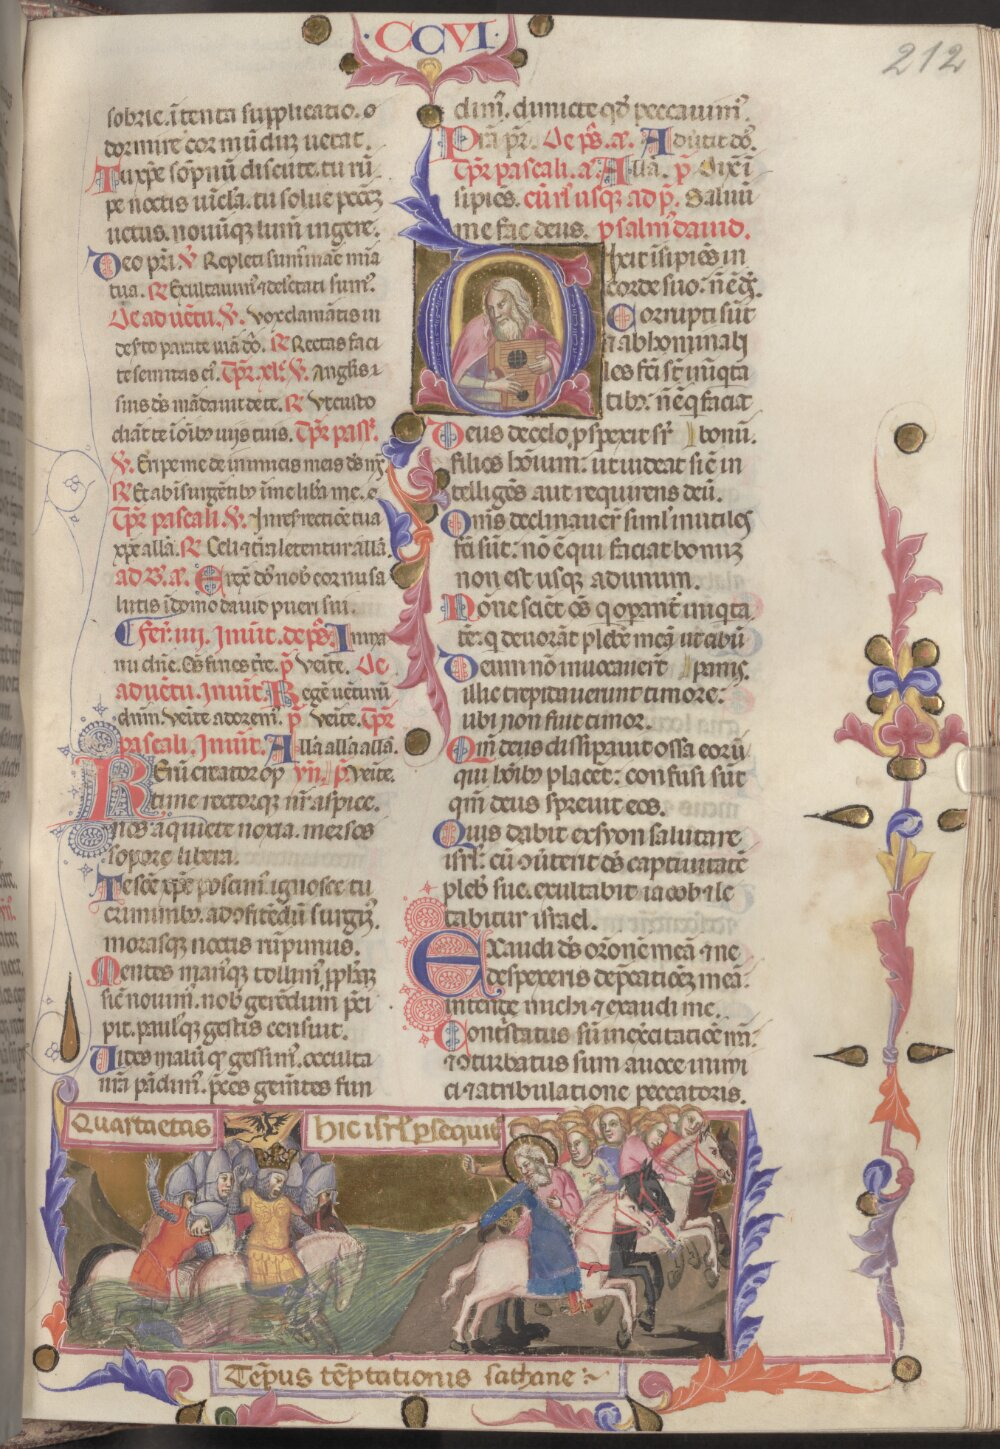 ·CCVI·
212
sobrie. ītenta supplicatio. o
dormire cor mūdum
Tu xp̄e sōpnū discute. tu rū
pe noctis uīcla. tu solue
uetus. nouūqz lum̄ ingere.
Deo pr̄i. V̄ Repleti sum̄ mane mīa
tua. R̄ Exultauim⁹ ⁊ delectati sum⁹.
De aduētu. V̄. Vox clamātis in
deſto parate uiā dō. R̄ Rectas faci
te semitas ei. Tp̄r. xlᵉ. V̄. Angłis ⁊
suis ds̄ mādauit de te. R̄ Vt custo
diāt te ī oīb⁹ uijs tuis. Tp̄r pass̄.
V̄. Eripe me de inimicis meis ds̄ m̄s
R̄ Et ab īsurgētib⁹ ī me lib̄a me.
Tp̄r pascali. V̄. In resrectiōe tua
xp̄e allā. R̄ Celi ⁊ t̄ra letentur allā.
ad B̄. a. Erexᵗ dō nob̄ cornu sa
lutis ī domo dauid pueri sui.
Fer̄. iiij. Inuit. de ps̄. In
nu dn̄e. Ōs fines tr̄e. p̄ Veīte. De
aduētu. Inuit. Regē uēturū
dn̄m. Veīte adorem⁹. p̄ Veīte. Tp̄r
pascali. Inuit. Allā allā allā.
p̄ Veīte.
REruꝫ creator op
time rectorqz nr̄ aspice.
nos a quiete noxia. mersos
sopore libera.
Te sc̄e xp̄e poscim⁹. ignosce tu
criminib⁹. ad ꝯfitēdū surgim⁹
morasqz noctis rūpimus.
Mentes man⁹qz tollim⁹.
sic̄ nouim⁹. nob̄ gerēdum p̄ci
pit. paulusqz gestis censuit.
Vides malū qᵈ gessim⁹. occulta
nr̄a pādim⁹. p̄ces gem̄tes fun
dim⁹. dimicte qᵈ peccauim⁹.
De ps̄. a. Aduertit dō.
Tp̄r pascali. a. Allā. p̄ Dixᵗ ī
sipiēs. cū rl̄ usqz ad p̄. Saluū
me fac deus. psalm⁹ dauid.
Dixit īsipiēs in
corde suo: nō ē ds̄.
Corrupti sūt
⁊ abhominabi
les fc̄i sc̄ iniqta
tib⁹: nō ē q faciat
Deus de celo ꝓspexit sr̄ bonū.
filios hōium: ut uideat si ē in
telligēs aut requirens deū.
Om̄s declinauer̄ siml̄ inutiles
fc̄i sūt: nō ē qui faciat bonuꝫ
non est usqz ad unum.
Nōne sciēt ōs q opant̄ iniqta
tē: q deuorāt plebē meā ut cibū
Deum nō inuocauer̄t panis.
illic trepidauerunt timore:
ubi non fuit timor.
Qm̄ deus dissipauit ossa eorū
qui hōib⁹ placēt: confusi sūt
qm̄ deus spreuit eos.
Quis dabit ex syon salutare
isrł: cū ꝯuterit ds̄ captiuitatē
pleb̄ sue. exultabit iacob ⁊ le
tabitur israel.
Exaudi ds̄ orōnē meā ⁊ ne
despexeris dep̄catiōeꝫ meā:
intende michi ⁊ exaudi me.
Cont̄status sū in exc̄itatiōe m̄:
⁊ ꝯturbatus sum a uoce inimi
ci ⁊ a tribulatione peccatoris.
Quarta etas
hic isrł ꝑsequit̄
Tēpus tēptationis sathane